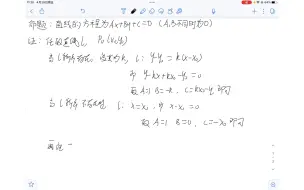 命题：直线的方程为Ax+By+C=0 (A,B不同时为0)
证：任取直线l， P₀(x₀,y₀)
当l斜率存在，l：y-y₀=k(x-x₀)
即 y-kx+kx₀-y₀=0
取A=1 B=-k，C=kx₀-y₀即可
当l斜率不存在 l：x=x₀，即 x-x₀=0
取A=1 B=0，C=-x₀即可